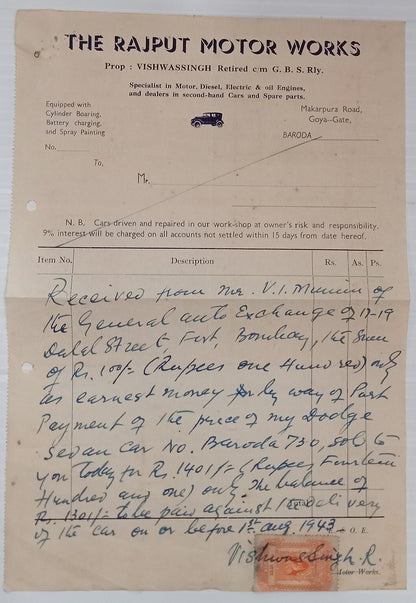 THE RAJPUT MOTOR WORKS
Prop : VISHWASSINGH Retired c/m G. B. S. Rly.
Specialist in Motor, Diesel, Electric & oil Engines,
and dealers in second-hand Cars and Spare parts.
Equipped with
Cylinder Boaring,
Battery charging,
and Spray Painting
Makarpura Road,
Goya-Gate,
BARODA
No.
To,
Mr.
N. B. Cars driven and repaired in our work-shop at owner's risk and responsibility.
9% interest will be charged on all accounts not settled within 15 days from date hereof.
Item No. Description Rs. As. Ps.
Received from Mr. V. I. Munim of
the General auto Exchange of 17-19
Dalal Street, Fort, Bombay, the Sum
of Rs. 100/- (Rupees one Hundred) only
as earnest money by way of Part
Payment of the price of my Dodge
Sedan Car No. Baroda 730, sold to
you today for Rs. 1401/- (Rupees Fourteen
Hundred and one) only. The balance of
Rs. 1301/- to be paid against the delivery
Total
of the car on or before 1st aug 1943
O. E.
Vishwassingh. R.
Motor Works.